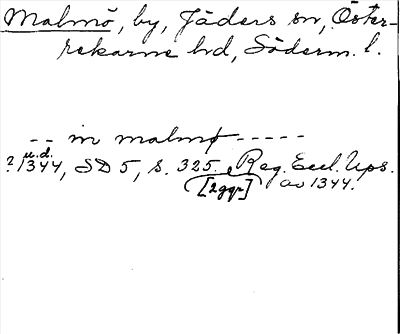 Malmö, by, Jäders sn, Öster-
rekarne hd, Söderm. l.
-- in malmø -----
u.d.
? 1344, SD 5, s. 325. Reg. Eccl. Ups.
[2ggr] av 1344.